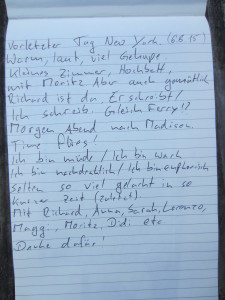 Vorletzter Tag New York (6.8.15)
Warm, laut, viel Gehupe
Kleines Zimmer, Hochbett,
mit Moritz. Aber auch gemütlich
Richard ist da. Er schreibt!
Ich schreib. Gleich Ferry!?
Morgen Abend nach Madison.
Time flies!
Ich bin müde / Ich bin wach
Ich bin nachdenklich / Ich bin euphorisch
Selten so viel gelacht in so
kurzer Zeit (zuletzt).
Mit Richard, Anna, Sarah, Lorenzo,
Maggi, Moritz, Didi etc.
Danke dafür!